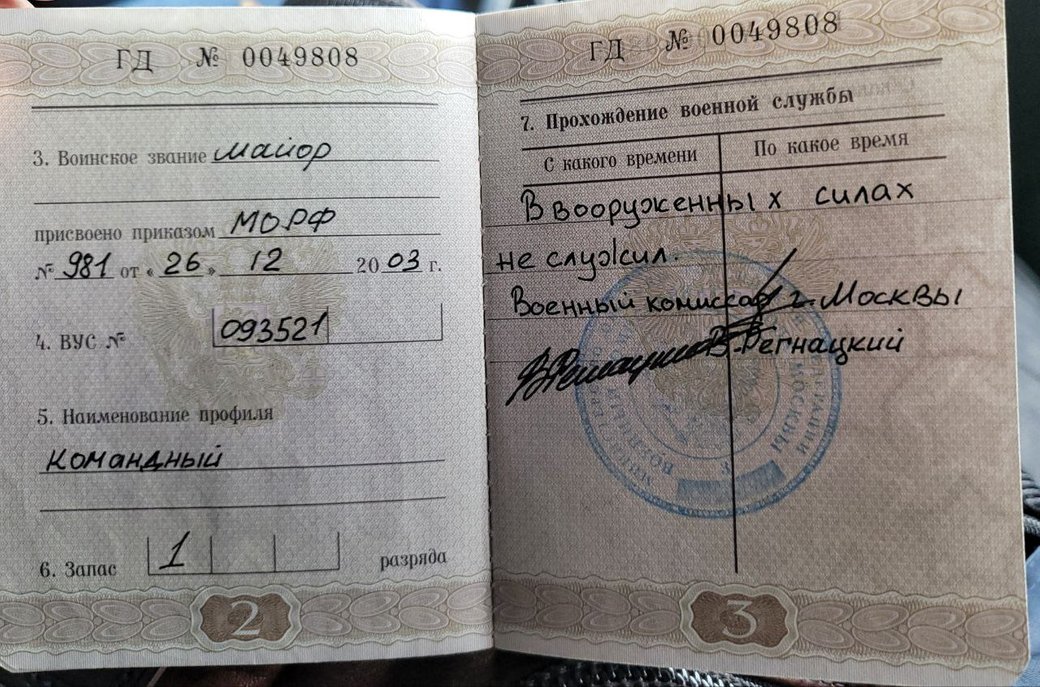 ГД № 0049808
3. Воинское звание майор
присвоено приказом МОРФ
№ 981 от « 26 » 12 2003 г.
4. ВУС № 093521
5. Наименование профиля
командный
6. Запас 1 разряда
2
ГД № 0049808
7. Прохождение военной службы
С какого времени По какое время
В вооруженных силах
не служил.
Военный комиссар г. Москвы
В. Регнацкий
МОСКВЫ
3